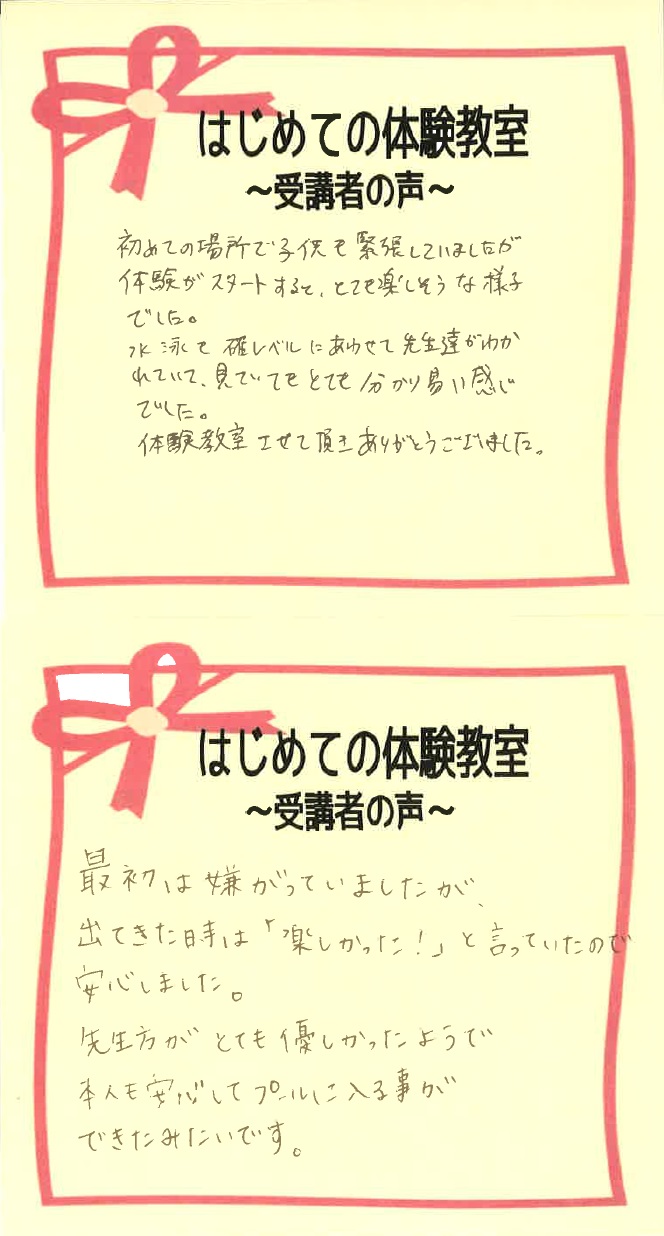 はじめての体験教室
～受講者の声～
初めての場所で子供も緊張していましたが
体験がスタートすると、とても楽しそうな様子
でした。
水泳も レベルにあわせて先生達がわか
れていて、見ていてもとても分かり易い感じ
でした。
体験教室させて頂きありがとうございました。
はじめての体験教室
～受講者の声～
最初は嫌がっていましたが、
出てきた時は「楽しかった！」と言っていたので
安心しました。
先生方がとても優しかったようで
本人も安心してプールに入る事が
できたみたいです。